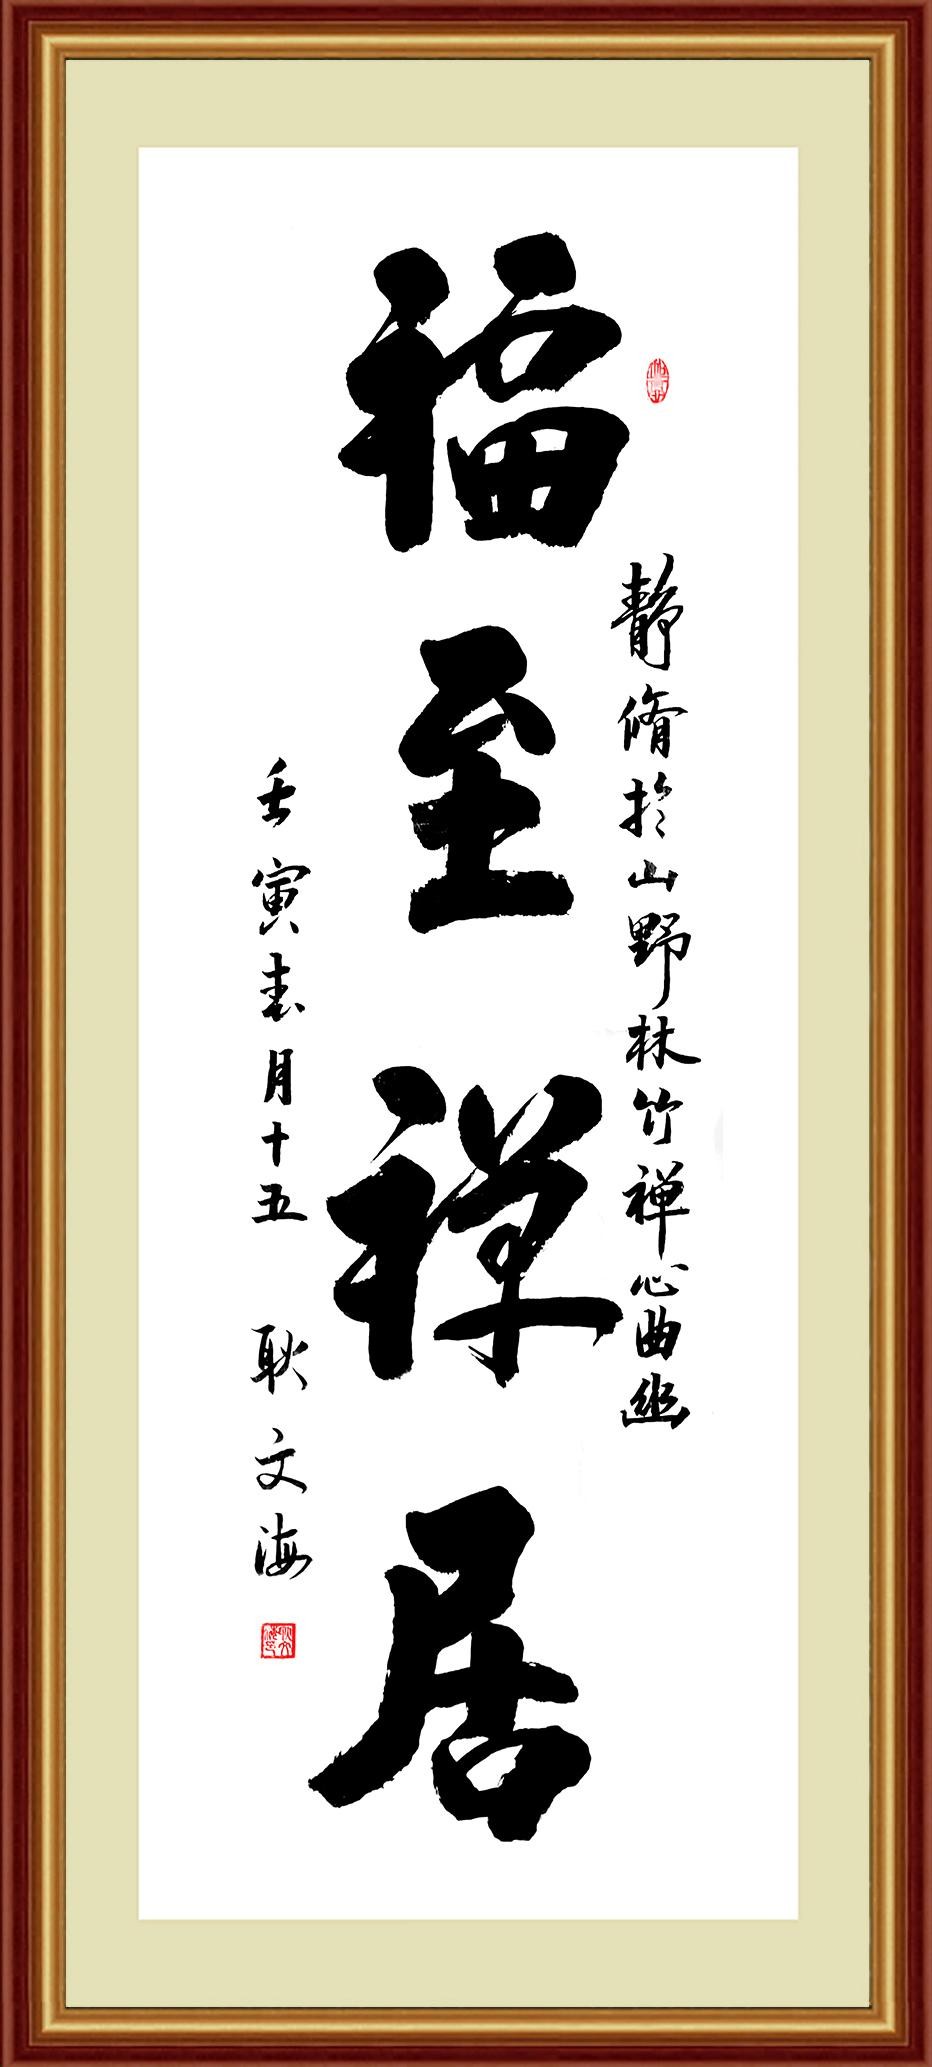 静脩於山野林竹禅心曲幽
福至禅居
壬寅春月十五 耿文海